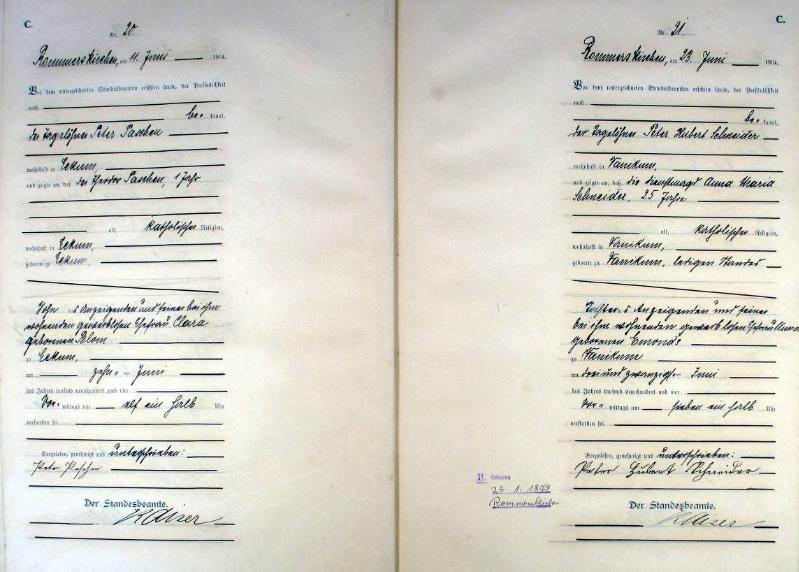 C.
Nr. 20
Rommerskirchen, am 11. Juni 1904.
Vor dem unterzeichneten Standesbeamten erschien heute, der Persönlichkeit
nach
be= kannt,
der Tagelöhner Peter Paschen
wohnhaft in Eckum,
und zeigte an, daß der Theodor Paschen, 1 Jahr
alt, katholischer Religion,
wohnhaft in Eckum,
geboren zu Eckum,
Sohn des Anzeigenden und seiner bei ihm
wohnenden gewerblosen Ehefrau Clara
geborenen Blom
zu Eckum,
am zehn= ten Juni
des Jahres tausend neunhundert und vier
Vor= mittags um elf ein halb Uhr
verstorben sei.
Vorgelesen, genehmigt und unterschrieben:
Peter Paschen
Der Standesbeamte.
Kaiser
C.
Nr. 21.
Rommerskirchen, am 23. Juni 1904.
Vor dem unterzeichneten Standesbeamten erschien heute, der Persönlichkeit
nach
be= kannt,
der Tagelöhner Peter Hubert Schneider
wohnhaft in Vanikum,
und zeigte an, daß die Dienstmagd Anna Maria
Schneider, 25 Jahre
alt, katholischer Religion,
wohnhaft in Vanikum,
geboren zu Vanikum, ledigen Standes
Tochter des Anzeigenden und seiner
bei ihm wohnenden gewerblosen Ehefrau Anna
geborenen Esmonds
zu Vanikum
am drei und zwanzigsten Juni
des Jahres tausend neunhundert und vier
Vor= mittags um sieben ein halb Uhr
verstorben sei.
Vorgelesen, genehmigt und unterschrieben:
Peter Hubert Schneider
Der Standesbeamte.
Kaiser
Geboren
25. 1. 1879
Rommerskirchen